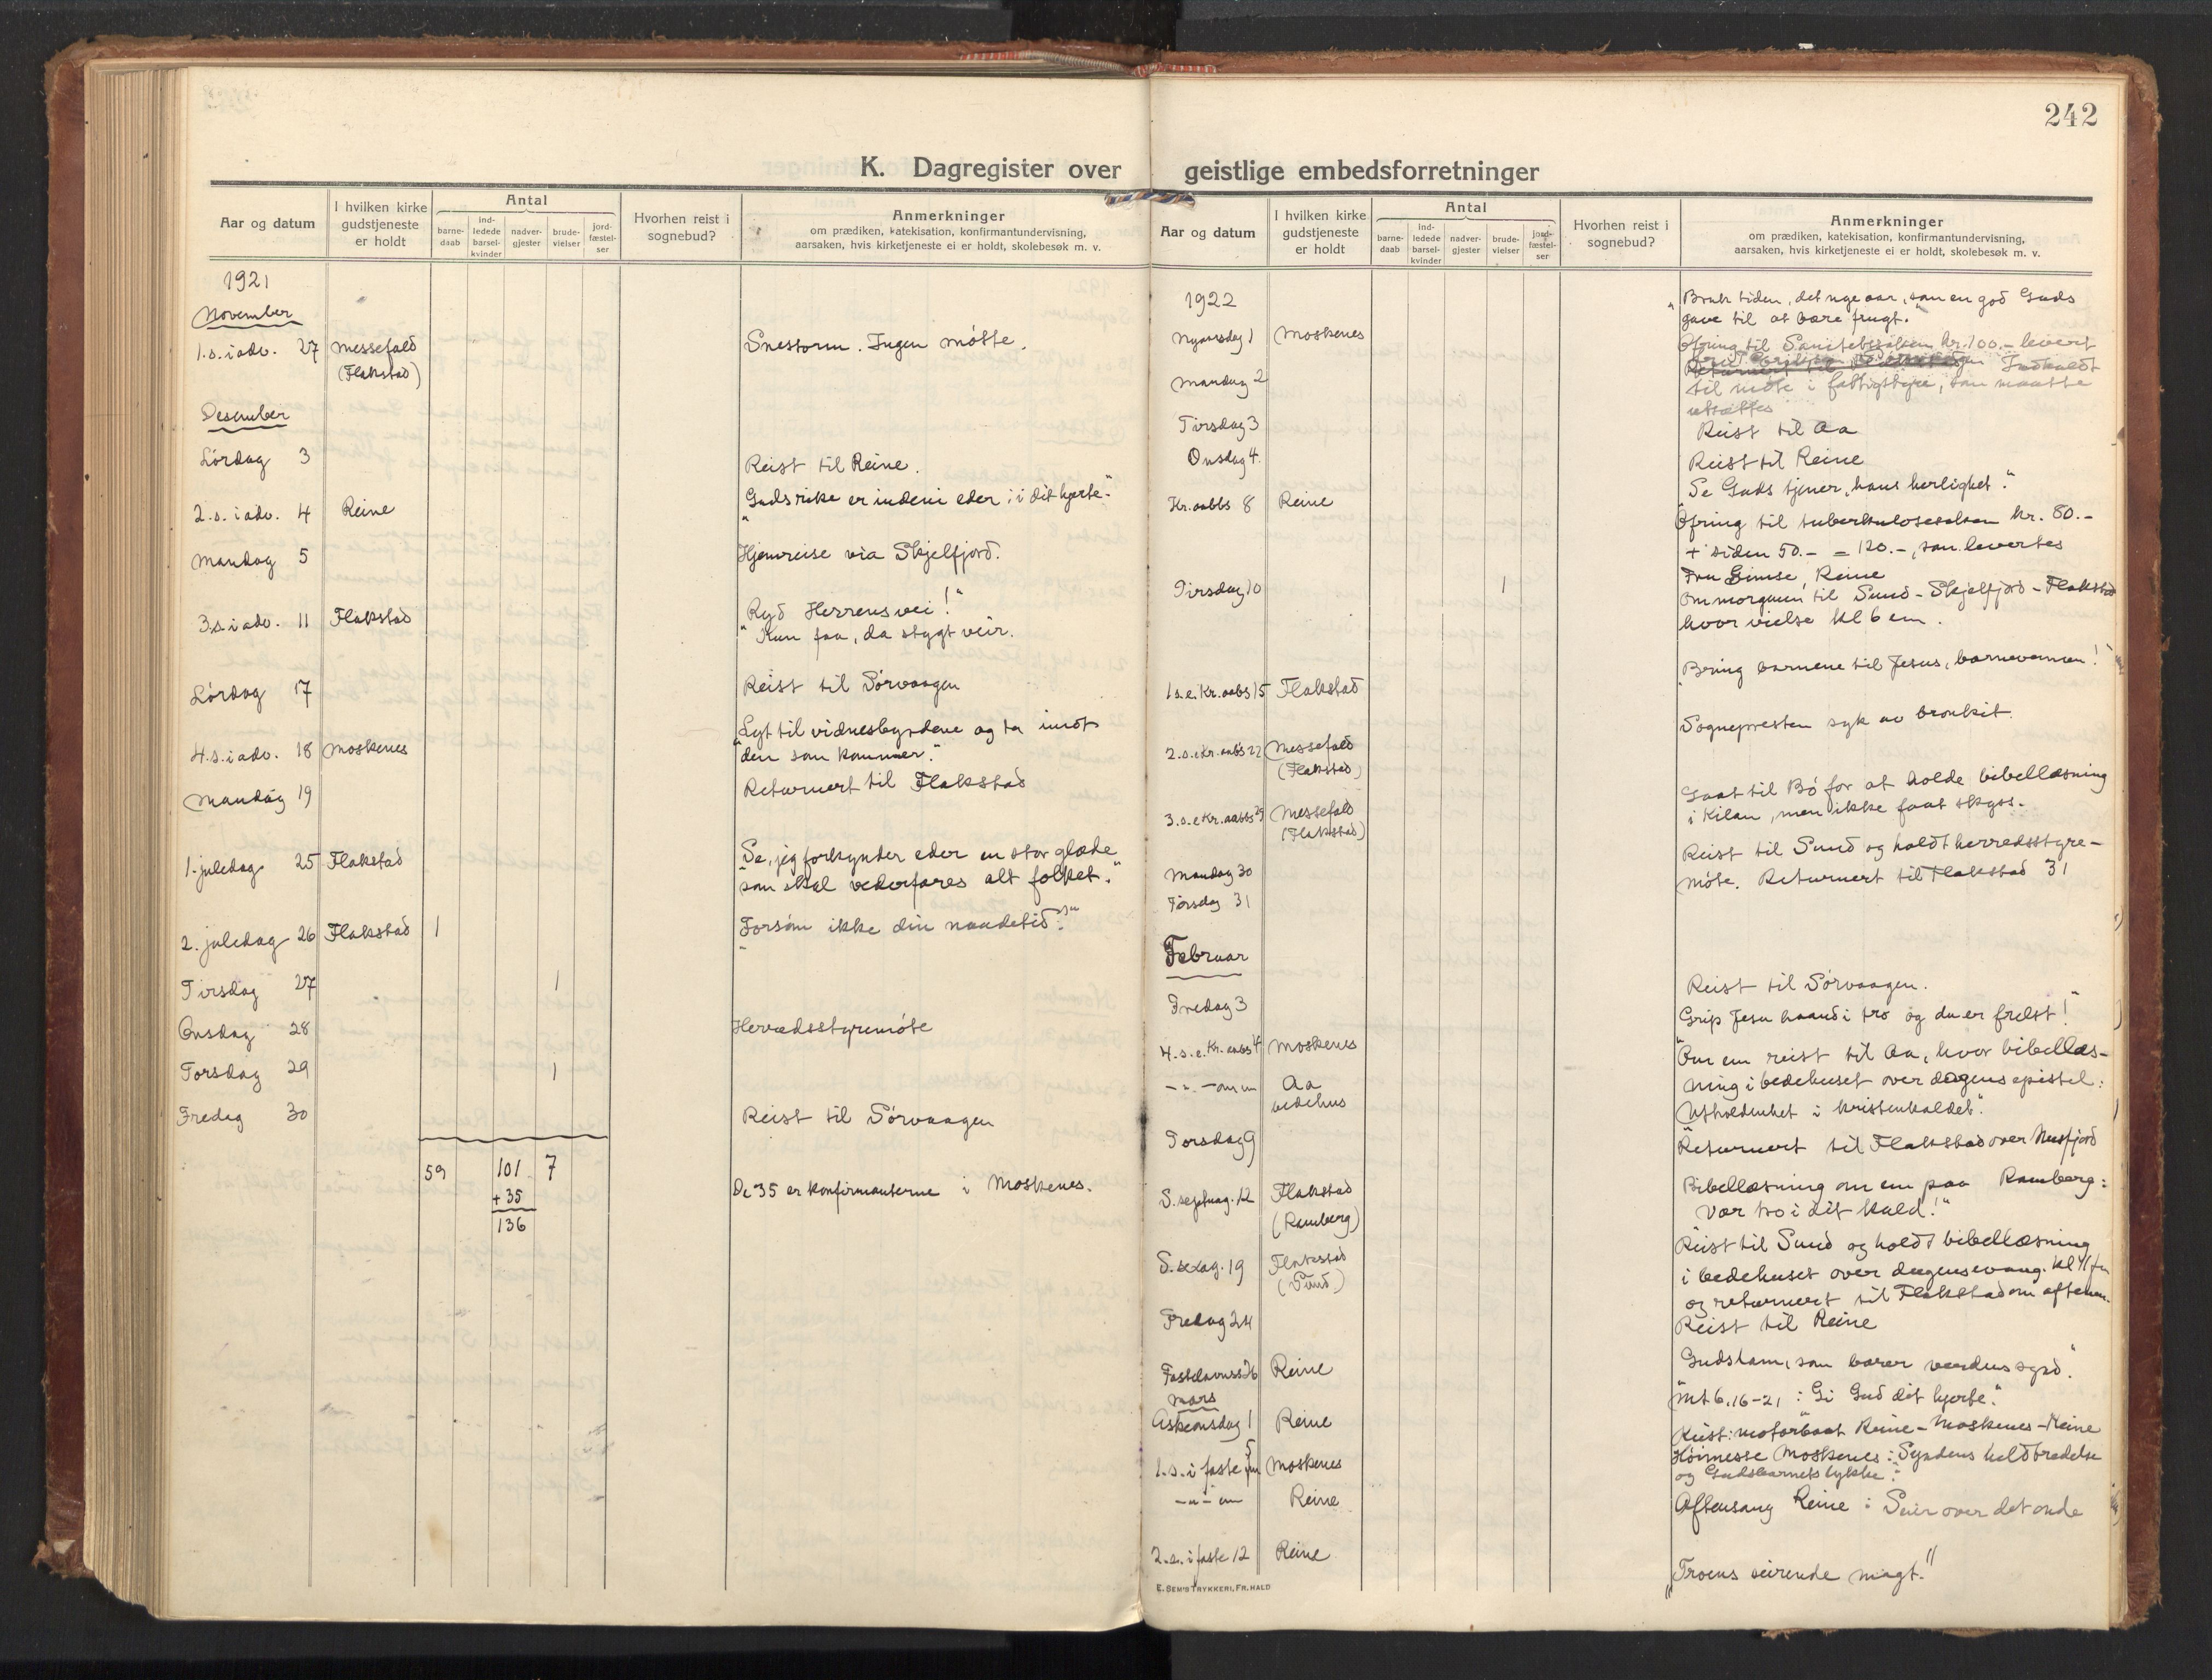 242
K. Dagregister over geistlige embedsforretninger
Aar og datum
I hvilken kirke gudstjeneste er holdt
Antal
barne-daab
ind-ledede barsel-kvinder
nadver-gjester
brude-vielser
jord-fæstel-ser
Hvorhen reist i sognebud?
Anmerkninger
om prædiken, katekisation, konfirmantundervisning,
aarsaken, hvis kirketjeneste ei er holdt, skolebesøk m. v.
1921
November
1. s. i adv. 27 Messefald Snestorm. Ingen møtte.
(Flakstad)
Desember
Lørdag 3 Reist til Reine.
2. s. i adv. 4 Reine "Guds rike er indeni eder : i dit hjerte."
Mandag 5 Hjemreise via Skjelfjord.
3. s. i adv. 11 Flakstad "Ryd Herrens vei!"
Kun faa, da stygt veir.
Lørdag 17 Reist til Sørvaagen
4. s. i adv. 18 Moskenes "Lyt til vidnesbyrdene og ta imot
den som kommer."
Mandag 19 Returnert til Flakstad
1. juledag 25 Flakstad "Se, jeg forkynder eder en stor glæde
som skal vederfares alt folket."
2. juledag 26 Flakstad 1 "Forsøm ikke din naadetid!"
Tirsdag 27 1
Onsdag 28 Herredsstyremøte
Torsdag 29 1
Fredag 30 Reist til Sørvaagen
59 101 7
+ 35 De 35 er konfirmanterne i Moskenes.
136
Aar og datum
I hvilken kirke gudstjeneste er holdt
Antal
barne-daab
ind-ledede barsel-kvinder
nadver-gjester
brude-vielser
jord-fæstel-ser
Hvorhen reist i sognebud?
Anmerkninger
om prædiken, katekisation, konfirmantundervisning,
aarsaken, hvis kirketjeneste ei er holdt, skolebesøk m. v.
1922
"Bruk tiden, det nye aar, som en god Guds
gave til at bære frugt."
Nyaarsdag 1 Moskenes Ofring til Sanitetssaken kr. 100.- levert
Indkaldt
Mandag 2 til møte i fattigstyre, som maatte
utsættes
Tirsdag 3 Reist til Aa
Onsdag 4. Reist til Reine
Kr. aabb 8 Reine "Se Guds tjener, hans herlighet."
Ofring til tuberkulosesaken kr. 80.-
+ siden 50.- = 120.-, som levertes
Fru Gimse, Reine
Tirsdag 10 1 Om morgenen til Sund - Skjelfjord - Flakstad
hvor vielse kl 6 em.
1 s. e. Kr. aabb 15 Flakstad "Bring barnene til Jesus, barnevennen!"
2. s. e Kr. aabb 22 Messefald Sognepresten syk av bronkit.
(Flakstad)
3. s. e Kr. aabb 29 Messefald Gaat til Bø for at holde bibellæsning
(Flakstad) i Kilan, men ikke faat skyss.
Mandag 30 Reist til Sund og holdt herredsstyre-
Tirsdag 31 møte. Returnert til Flakstad 31
Februar
Fredag 3 Reist til Sørvaagen.
4. s. e. Kr. aabb Moskenes "Grip Jesu haand i tro og du er frelst!"
- " - om em Aa Om em reist til Aa, hvor bibellæs-
bedehus ning i bedehuset over dagens epistel:
"Utholdenhet i kristenkaldet."
Torsdag 9 Returnert til Flakstad over Nusfjord
S. septuag. 12 Flakstad Bibellæsning om em paa Ramberg:
(Ramberg) "Vær tro i dit kald!"
S. sexag. 19 Flakstad Reist til Sund og holdt bibellæsning
(Sund) i bedehuset over dagens evang. kl 11 fm
og returnert til Flakstad om aftenen.
Fredag 24 Reist til Reine
Fastelavnss 26 Reine "Guds lam, som bærer verdens synd."
Mars
Askeonsdag 1 Reine Mt 6, 16-21 : "Gi Gud dit hjerte."
1. s. i faste 5 fm Moskenes Reist: motorbaat Reine - Moskenes - Reine
Høimesse Moskenes: "Syndens helbredelse
og Gudsbarnets lykke."
- " - em Reine Aftensang Reine : Seier over det onde
2. s. i faste 12 Reine "Troens seirende magt."
E. SEM'S TRYKKERI, FR. HALD